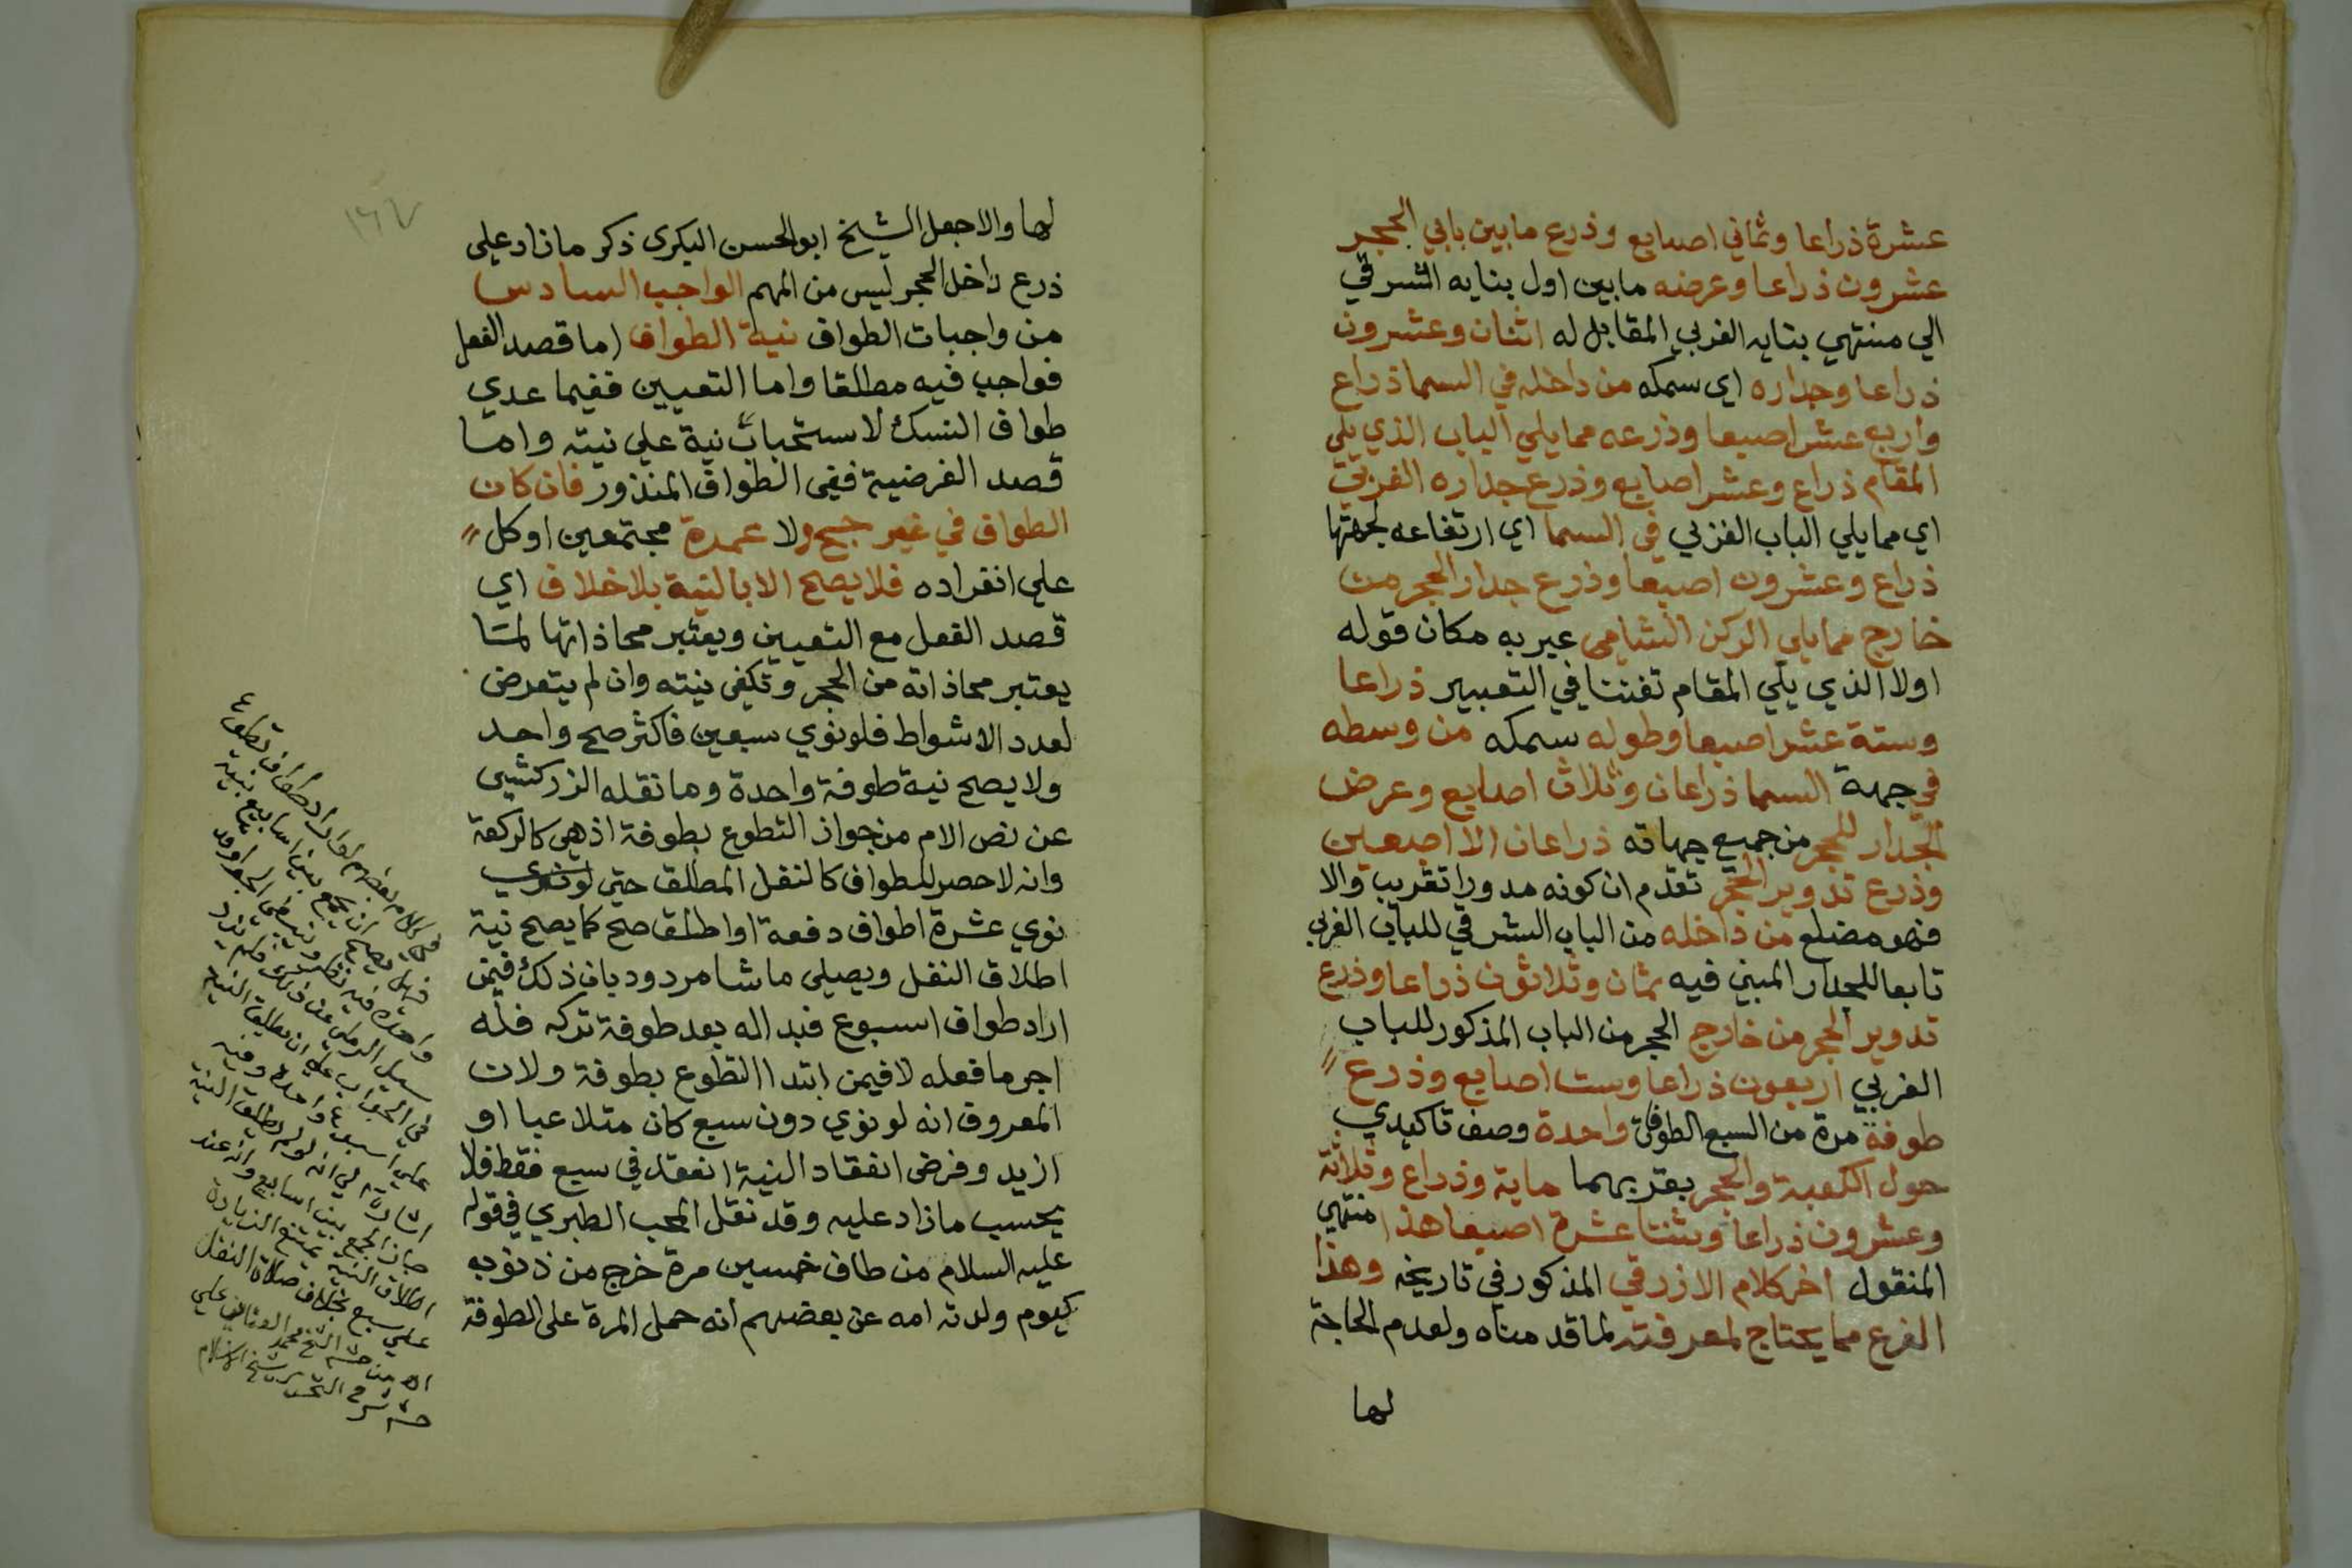 عشرة ذراعا وثماني اصابع وذرع مابين بابي الحجر
عشرون ذراعا وعرضه مابين اول بنايه الشرقي
الي منتهي بنايه الغربي المقابل له اثنان وعشرون
ذراعا وجداره اي سمكه من داخله في السما ذراع
واربع عشر اصبعا وذرعه مما يلي الباب الذي يلي
المقام ذراع وعشر اصابع وذرع جداره الغربي
اي مما يلي الباب الغربي في السما اي ارتفاعه لجهتها
ذراع وعشرون اصبعا وذرع جدار الحجر من
خارج مما يلي الركن الشامي عبر به مكان قوله
اولا الذي يلي المقام تفننا في التعبير ذراعا
وستة عشر اصبعا وطوله سمكه من وسطه
في جهة السما ذراعان وثلاث اصابع وعرض
الجدار للحجر من جميع جهاته ذراعان الا اصبعين
وذرع تدوير الحجر تقدم ان كونه مدورا تقريب والا
فهو مضلع من داخله من الباب الشرقي للباب الغربي
تابعا للجدار المبني فيه ثمان وثلاثون ذراعا وذرع
تدوير الحجر من خارج الحجر من الباب المذكور للباب
الغربي اربعون ذراعا وست اصابع وذرع
طوفة مرة من السبع الطوفات واحدة وصف تاكيدي
حول الكعبة والحجر بقربهما ماية وذراع وثلاثة
وعشرون ذراعا وثنتا عشرة اصبعا هذا منتهي
المنقول اخر كلام الازرقي المذكور في تاريخه وهذا
الفرع مما يحتاج لمعرفته لما قدمناه ولعدم الحاجة
لها
لها والا جعل الشيخ ابو الحسن البكرى ذكر مازاد على
ذرع داخل الحجر ليس من المهم الواجب السادس
من واجبات الطواف نية الطواف اما قصد الفعل
فواجب فيه مطلقا واما التعيين ففيما عدي
طواف النسك لاستحباب نية علي نيته واما
قصد الفرضية ففي الطواف المنذور فان كان
الطواف في غير حج ولا عمرة مجتمعين او كل
علي انفراده فلا يصح الا بالنية بلا خلاف اي
قصد الفعل مع التعيين ويعتبر محاذاتها لما
يعتبر محاذاته من الحجر وتكفي نيته وان لم يتعرض
لعدد الاشواط فلو نوي سبعين فاكثر صح واحد
ولا يصح نية طوفة واحدة وما نقله الزركشي
عن نص الام من جواز التطوع بطوفة اذ هي كالركعة
وانه لا حصر للطواف كالنفل المطلق حتي لو
نوي عشرة اطواف دفعة او اطلق صح كما يصح نية
اطلاق النفل ويصلي ما شا مردود بان ذلك فيمن
اراد طواف اسبوع فبدا له بعد طوفة تركه فله
اجر ما فعله لا فيمن ابتدا التطوع بطوفة ولان
المعروف انه لو نوي دون سبع كان متلاعبا او
ازيد وفرض انعقاد النية انعقد في سبع فقط فلا
يحسب مازاد عليه وقد نقل المحب الطبري في قوله
عليه السلام من طاف خمسين مرة خرج من ذنوبه
كيوم ولدته امه عن بعضهم انه حمل المرة على الطوفة
١٦٧
في كلام بعضهم لو اراد طواف تطوع
فهل يصح ان يجمع بين اسابيع بنية
واحدة فيه نظر
سيل الرملي عن ذلك فلم يزد
في الجواب علي ان يطلق النية
علي اسبوع واحدة وفيه
اشارة الي انه لو لم يطلق النية
بان جمع بين اسابيع وانه عند
اطلاق النية يمتنع الزيادة
علي سبع بخلاف صلاة النفل
اه من الشيخ محمد العناني علي
شرح التحرير لشيخ الاسلام